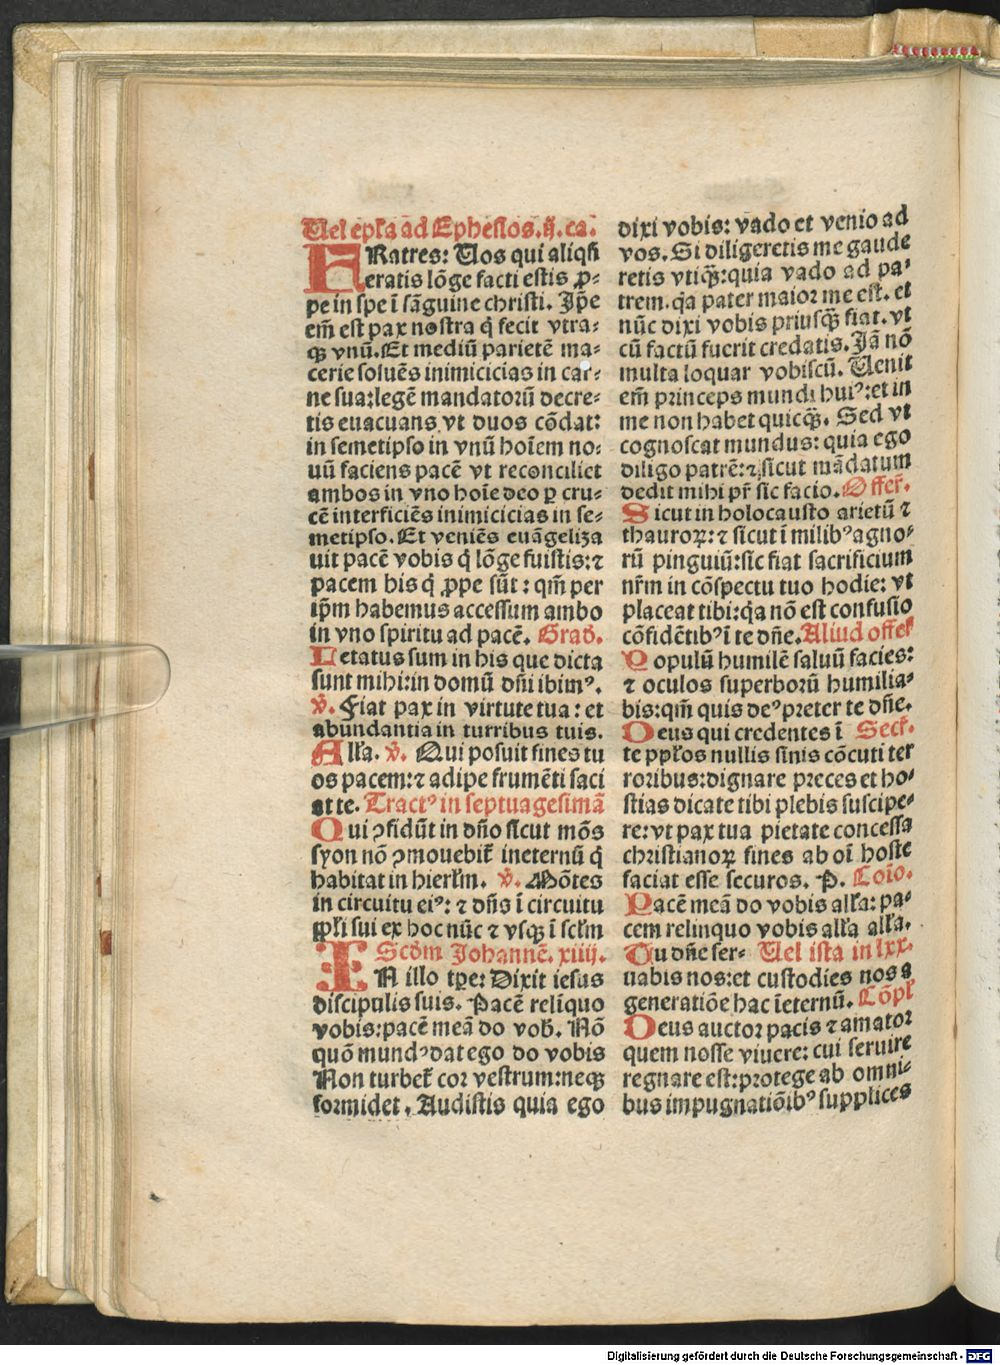 Uel epl̄a ad Ephesios. ij. ca.
FRatres: Uos qui aliqn̄
eratis lōge facti estis ꝓ-
pe in spe ī sāguine christi. Ip̄e
em̄ est pax nostra q̇ fecit vtra-
qꝫ vnū. Et mediū parietē ma-
cerie soluēs inimicicias in car-
ne sua: legē mandatorū decre-
tis euacuans vt duos cōdat:
in semetipso in vnū hoīem no-
uū faciens pacē vt reconciliet
ambos in vno hoīe deo ꝑ cru-
cē interficiēs inimicicias in se-
metipso. Et veniēs euāgeliza
uit pacē vobis q̇ lōge fuistis: ⁊
pacem his q̇ ꝓpe sūt: qm̄ per
ip̄m habemus accessum ambo
in vno spiritu ad pacē. Grad̄.
Letatus sum in his que dicta
sunt mihi: in domū dn̄i ibimꝰ.
v̇. Fiat pax in virtute tua: et
abundantia in turribus tuis.
All̄a. v̇. Qui posuit fines tu
os pacem: ⁊ adipe frumēti saci
at te. Tractꝰ in septuagesimā
Qui ꝯfidūt in dn̄o sicut mōs
syon nō ꝯmouebit̄ ineternū q̇
habitat in hierl̄m. v̇. Mōtes
in circuitu eiꝰ: ⁊ dn̄s ī circuitu
ppl̄i sui ex hoc nūc ⁊ vsqꝫ ī scl̄m
Scd̄m Johannē. xiiij.
IN illo tꝑe: Dixit iesus
discipulis suis. Pacē relīquo
vobis: pacē meā do vob̄. Nō
quō mundꝰ dat ego do vobis
Non turbet̄ cor vestrum: neqꝫ
formidet. Audistis quia ego
dixi vobis: vado et venio ad
vos. Si diligeretis me gaude
retis vtiqꝫ: quia vado ad pa-
trem. q̇a pater maior me est. et
nūc dixi vobis priusqꝫ fiat. vt
cū factū fuerit credatis. Jā nō
multa loquar vobiscū. Uenit
em̄ princeps mundi huiꝰ: et in
me non habet quicqꝫ. Sed vt
cognoscat mundus: quia ego
diligo patrē: ⁊ sicut mādatum
dedit mihi pr̄ sic facio. Offer̄.
Sicut in holocausto arietū ⁊
thauroꝝ: ⁊ sicut ī milibꝰ agno-
rū pinguiū: sic fiat sacrificium
nr̄m in cōspectu tuo hodie: vt
placeat tibi: q̇a nō est confusio
cōfidētibꝰ ī te dn̄e. Aliud offer̄
Populū humilē saluū facies:
⁊ oculos superborū humilia-
bis: qm̄ quis deꝰ preter te dn̄e.
Deus qui credentes ī Secr̄.
te ppl̄os nullis sinis cōcuti ter
roribus: dignare preces et ho-
stias dicate tibi plebis suscipe-
re: vt pax tua pietate concessa
christianoꝝ fines ab oī hoste
faciat esse securos. P. Coīo.
Pacē meā do vobis all̄a: pa-
cem relinquo vobis all̄a all̄a.
Tu dn̄e ser- Uel ista in lxx.
uabis nos: et custodies nos a
generatiōe hac īeternū. Cōpl̄
Deus auctor pacis ⁊ amator
quem nosse viuere: cui seruire
regnare est: protege ab omni-
bus impugnatiōibꝰ supplices
Digitalisierung gefördert durch die Deutsche Forschungsgemeinschaft - DFG